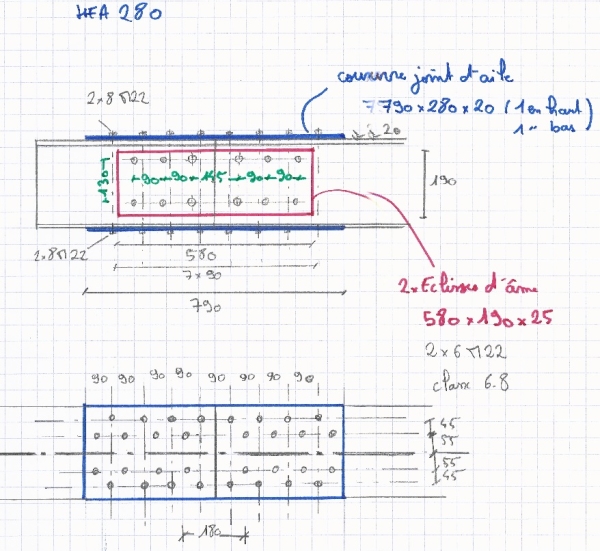 HEA 280
couvre joint d'aile
2x8 M22
790x280x20 (1 en haut)
1" bas)
20
130
90 90 145 90 90
190
2x8M22
580
7x90
790
2x Eclisses d'âme
580x190x25
2x6 M22
classe 6.8
90 90 90 90 90 90 90 90
45
55
55
45
180